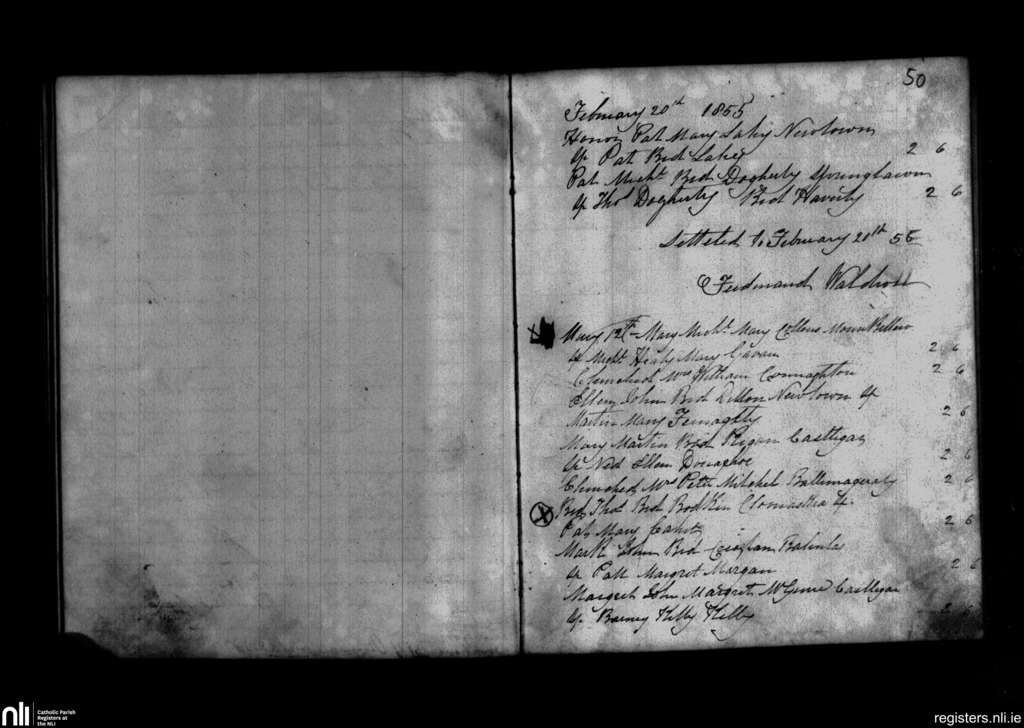 50
February 20th 1855
Honor Pat Mary Lahy Newtown
Sp Pat Brd Lahey 2 6
Pat Michl Brd Dogherty Younglawn
Sp Thos Dogherty Brd Haverty 2 6
Setteled to February 20th 55
Ferdinand Waldron
12th Mary Michl Mary Collens Mount Bellew
Sp Mary Gavan 2 6
Churched Mrs William Connaghton 2 6
Ellen John Brd Dillon Newtown Sp
Martin Mary 2 6
Mary Martin Brd Castlegar
Sp Ned Ellen 2 6
Churched Mrs Peter Mitchel 2 6
Brd Thos Brd Bodkin Sp
Pat Mary 2 6
Mark John Brd
Sp Patt Margret Morgan 2 6
Margret John Margret Castlegar
Sp Barney Kelly Kelly 2 6
nli
Catholic Parish
Registers at
the NLI
registers.nli.ie